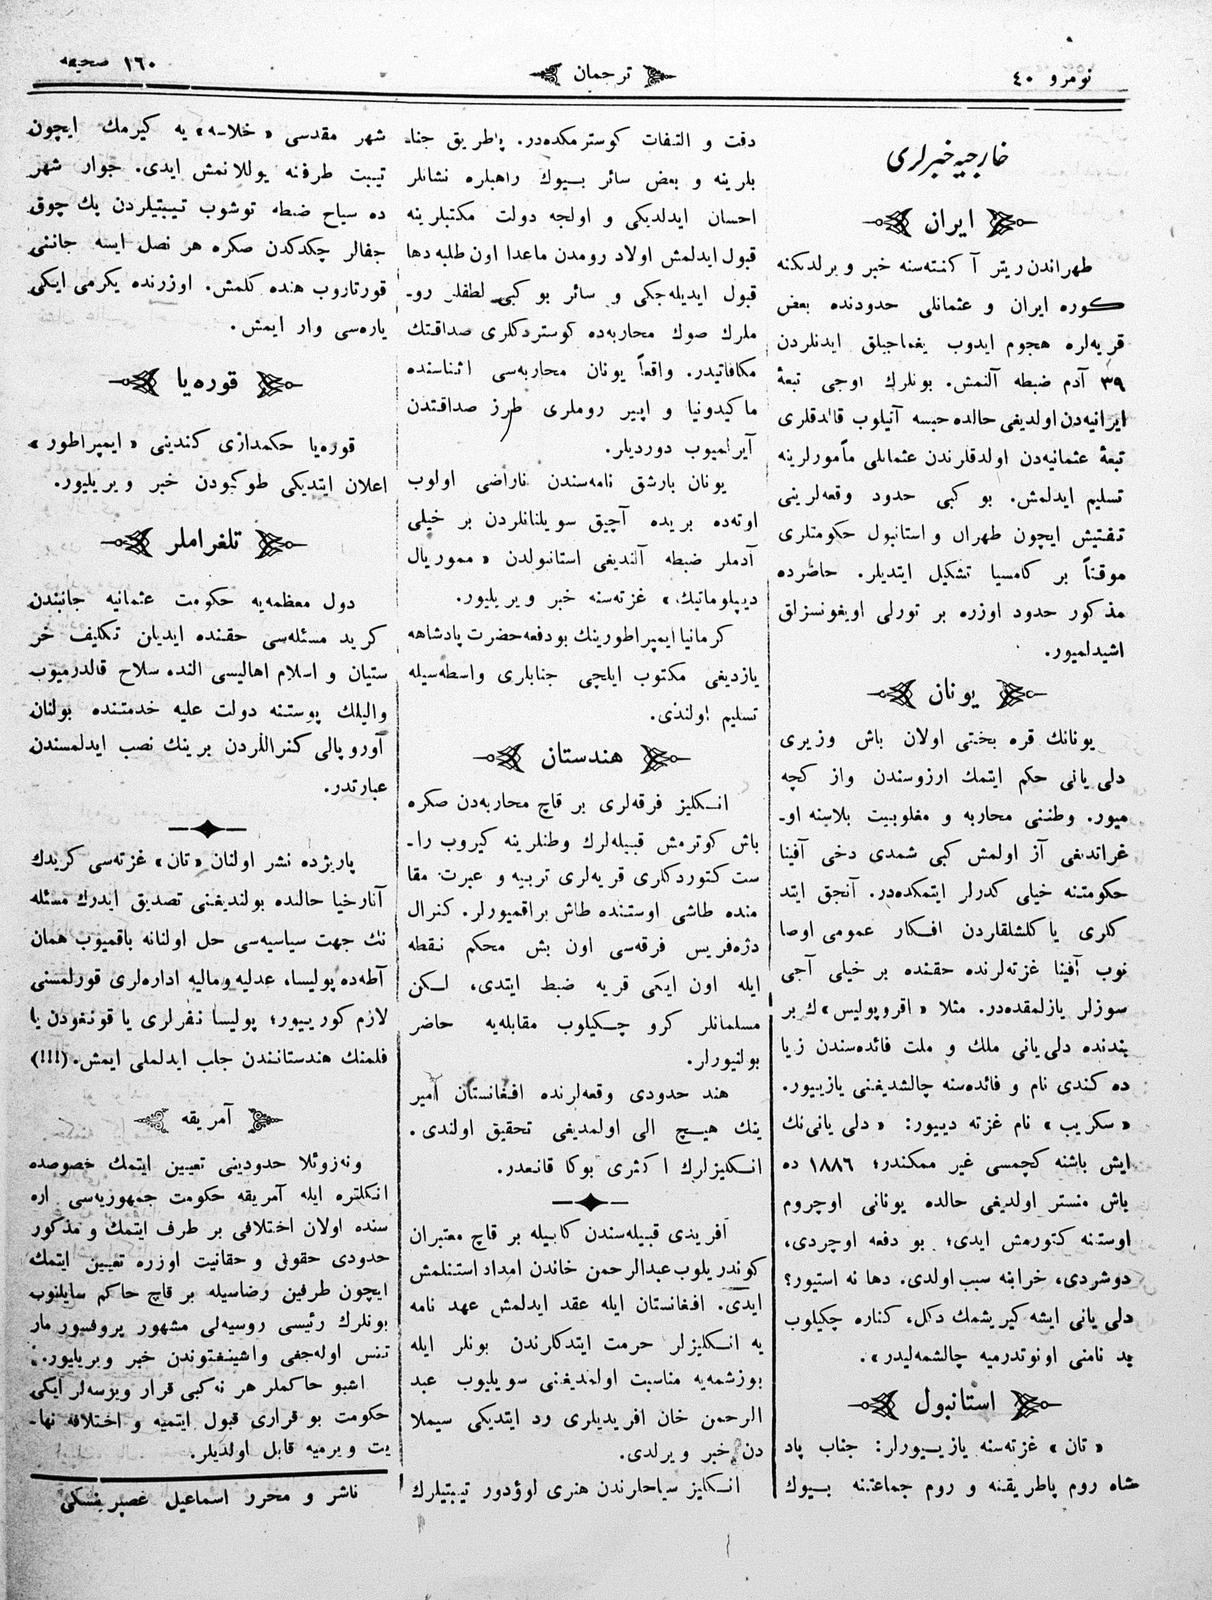 نومرو ٤٠
ترجمان
١٦٠ صحیفه
خارجیه خبرلری
ایران
طهراندن ریتر آ كنته‌سنه خبر و یرلدیكنه
كوره ایران و عثمانلی حدودنده بعض
قریه‌لره هجوم ایدوب یغماجیلق ایدنلردن
٣٩ آدم ضبطه آلنمش. بونلرك اوچی تبعهٔ
ایرانیه‌دن اولدیغی حالده حبسه آتیلوب قالدقلری
تبعهٔ عثمانیه‌دن اولدقلرندن عثمانلی مأمورلرینه
تسلیم ایدلمش. بو كبی حدود وقعه‌لرینی
تفتیش ایچون طهران و استانبول حكومتلری
موقتاً بر كامسیا تشكیل ایتدیلر. حاضرده
مذكور حدود اوزره بر تورلی اویغونسزلق
اشیدلمیور.
یونان
یونانك قره بختی اولان باش وزیری
دلی یانی حكم ایتمك ارزوسندن واز كچه
میور. وطننی محاربه و مغلوبیت بلاسنه او-
غراتدیغی آز اولمش كبی شمدی دخی آفینا
حكومتنه خیلی كدرلر ایتمكده‌در. آنجق ایتد
كلری یا كلشلقاردن افكار عمومی اوصا
نوب آفینا غزته‌لرنده حقنده بر خیلی آجی
سوزلر یازلمقده‌در. مثلا «اقروپولیس»ك بر
بندنده دلی یانی ملك و ملت فائده‌سندن زیا
ده كندی نام و فائده‌سنه چالشدیغنی یازییور.
«سكریب» نام غزته دییور: «دلی یانی‌نك
ایش باشنه كچمسی غیر ممكندر؛ ١٨٨٦ ده
باش منستر اولدیغی حالده یونانی اوچروم
اوستنه كتورمش ایدی؛ بو دفعه اوچردی،
دوشردی، خرابنه سبب اولدی. دها نه استیور؟
دلی یانی ایشه كیریشمك دكل، كناره چكیلوب
بد نامنی اونوتدرمیه چالشمه‌لیدر».
استانبول
«تان» غزته‌سنه یازییورلر: جناب پاد
شاه روم پاطریقنه و روم جماعتنه بیوك
دقت و التفات كوسترمكده‌در. پاطریق جنا-
بلرینه و بعض سائر بیوك راهبلره نشانلر
احسان ایدلدیكی و اولجه دولت مكتبلرینه
قبول ایدلمش اولاد رومدن ماعدا اون طلبه دها
قبول ایدیله‌جكی و سائر بو كبی لطفلر رو-
ملرك صوك محاربه‌ده كوستردكلری صداقتك
مكافاتیدر. واقعاً یونان محاربه‌سی اثناسنده
ماكیدونیا و اپیر روملری طرز صداقتدن
آیرلمیوب دوردیلر.
یونان بارشق نامه‌سندن ناراضی اولوب
اوته‌ده بریده آچیق سویلنانلردن بر خیلی
آدملر ضبطه آلندیغی استانبولدن «مموریال
دیپلوماتیك» غزته‌سنه خبر و یریلیور.
كرمانیا ایمپراطورینك بودفعه حضرت پادشاهه
یازدیغی مكتوب ایلچی جنابلری واسطه‌سیله
تسلیم اولندی.
هندستان
انكلیز فرقه‌لری بر قاچ محاربه‌دن صكره
باش كوترمش قبیله‌لرك وطنلرینه كیروب را-
ست كتوردكلری قریه‌لری تربیه و عبرت مقا
منده طاشی اوستنده طاش براقمیورلر. كنرال
دژه‌فریس فرقه‌سی اون بش محكم نقطه
ایله اون ایكی قریه ضبط ایتدی، لكن
مسلمانلر كرو چكیلوب مقابله‌یه حاضر
بولنیورلر.
هند حدودی وقعه‌لرنده افغانستان امیر
ینك هیچ الی اولمدیغی تحقیق اولندی.
انكلیزلرك اكثری بوكا قانعدر.
افریدی قبیله‌سندن كابیله بر قاچ معتبران
كوندریلوب عبدالرحمن خاندن امداد استنلمش
ایدی. افغانستان ایله عقد ایدلمش عهد نامه
یه انكلیزلر حرمت ایتدكلرندن بونلر ایله
بوزشمه‌یه مناسبت اولمدیغنی سویلیوب عبد
الرحمن خان افریدیلری رد ایتدیكی سیملا
دن خبر و یرلدی.
انكلیز سیاحلرندن هنری لوؤدور تیبتیلرك
شهر مقدسی «خلاسه» یه كیرمك ایچون
تیبت طرفنه یوللانمش ایدی. جوار شهر
ده سیاح ضبطه توشوب تیبتیلردن پك چوق
جفالر چكدكدن صكره هر نصل ایسه جاننی
قورتاروب هنده كلمش. اوزرنده یكرمی ایكی
یاره‌سی وار ایمش.
قوره‌یا
قوره‌یا حكمداری كندینی «ایمپراطور»
اعلان ایتدیكی طوكیودن خبر و یریلیور.
تلغراملر
دول معظمه‌یه حكومت عثمانیه جانبندن
كرید مسئله‌سی حقنده ایدیلن تكلیف خر
ستیان و اسلام اهالیسی النده سلاح قالدرمیوب
والیلك پوستنه دولت علیه خدمتنده بولنان
آوروپالی كنراللردن برینك نصب ایدلمسندن
عبارتدر.
پاریژده نشر اولنان «تان» غزته‌سی كریدك
آنارخیا حالنده بولندیغنی تصدیق ایدرك مسئله
نك جهت سیاسیه‌سی حل اولنانه باقمیوب همان
آطه‌ده پولیسا، عدلیه ومالیه اداره‌لری قورلمسنی
لازم كورییور؛ پولیسا نفرلری یا قونغودن یا
فلمنك هندستانندن جلب ایدلملی ایمش. (!!!)
آمریقه
ونه‌زوئلا حدودینی تعیین ایتمك خصوصده
انكلتره ایله آمریقه حكومت جمهوریه‌سی اره
سنده اولان اختلافی بر طرف ایتمك و مذكور
حدودی حقوق و حقانیت اوزره تعیین ایتمك
ایچون طرفین رضاسیله بر قاچ حاكم سایلنوب
بونلرك رئیسی روسیه‌لی مشهور پروفسور مار
تنس اوله‌جغی واشینغتوندن خبر ویریلیور.
اشبو حاكملر هر نه كبی قرار ویرسه‌لر ایكی
حكومت بو قراری قبول ایتمیه و اختلافه نها-
یت و یرمیه قابل اولدیلر.
ناشر و محرر اسماعیل غصپرینسكی